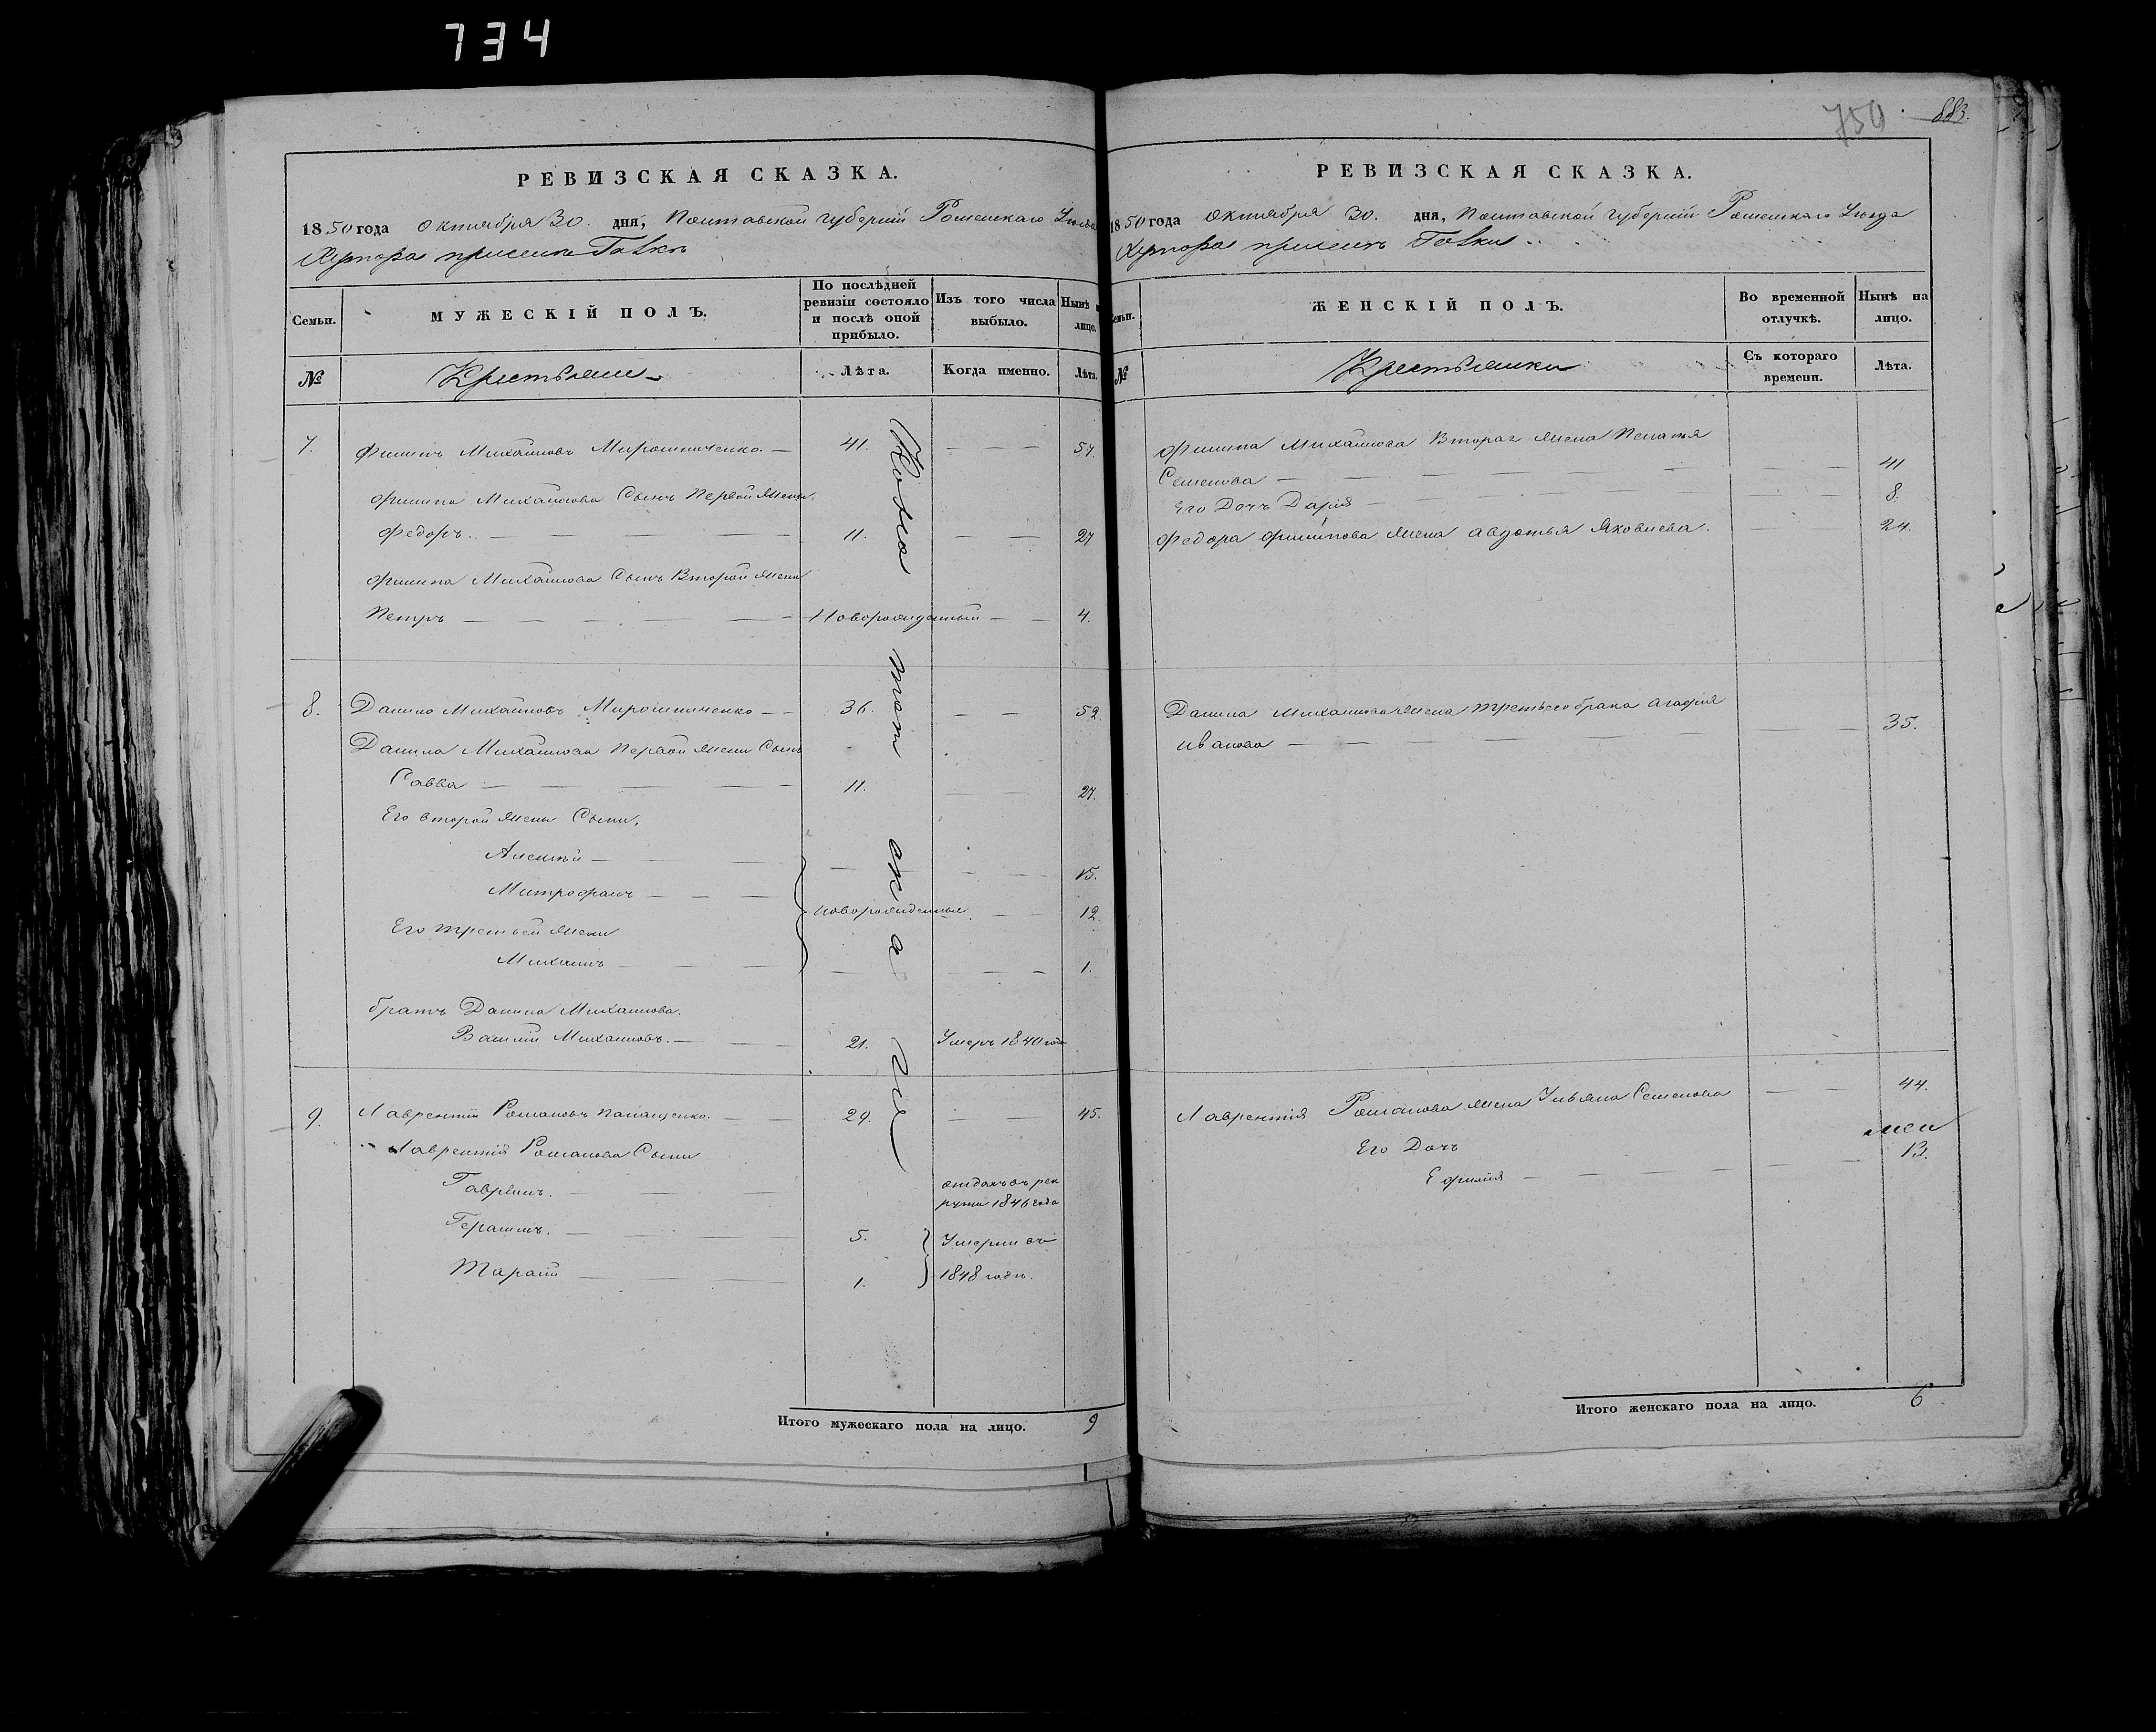 734
750 883.
РЕВИЗСКАЯ СКАЗКА.
1850 года Октября 30. дня, Полтавской губернiи Роменскаго Уезда
Хутора при
МУЖЕСКIЙ ПОЛЪ.
Семьи.
По послѣдней ревизiи состояло и послѣ оной прибыло.
Изъ того числа выбыло.
Нынѣ на лицо.
№
Крестьяне
Лѣта.
Когда именно.
Лѣта.
7. Филипъ Михайловъ Мирошниченко. — 41. — — — 57.
Филипа Михайлова Сынъ Первой Жены
Федоръ. — — — — 11. — — 27
Филипа Михайлова Сынъ Второй Жены
Петръ — — — — — Новорожденный — — 4.
8. Данило Михайловъ Мирошниченко — — 36. — — 52
Данила Михайлова Первой Жены Сынъ
Савва — — — — 11. — — 27.
Его второй Жены Сыны,
Алексѣй — — — — — 15.
Митрофанъ — — — новорожденныя — — 12
Его третьей Жены
Михаилъ — — — — — — — 1.
братъ Данила Михайлова.
Василiй Михайловъ. — — 21. Умеръ 1840 года
9. Лаврентiй Романовъ Панащенко. — 29. — — 45.
Лаврентiя Романова Сыны
Гаврiилъ. — — отданъ въ рек
руты 1846 года
Герасимъ. — — — — 5. Умерли въ
Тарасiй — — — 1. 1848 годѣ.
Итого мужескаго пола на лицо. 9
РЕВИЗСКАЯ СКАЗКА.
1850 года Октября 30. дня, Полтавской губернiи Роменскаго Уезда
Хутора при
Семьи.
ЖЕНСКIЙ ПОЛЪ.
Во временной отлучкѣ.
Нынѣ на лицо.
№
Крестьянки
Съ котораго времени.
Лѣта.
Филипа Михайлова Вторая Жена Пелагея
Семенова — — — — — — — 41
Его Дочь Дарiя — — — — — — 8.
Федора Филипова Жена Авдотья Яковлева. — — 24.
Данила Михайлова Жена третьего брака Агафiя
Иванова — — — — — — — 35.
Лаврентiя Романова Жена Ульяна Семенова — — 44.
Его Дочь
Ефимiя — — — — — — 13.
Итого женскаго пола на лицо. 6